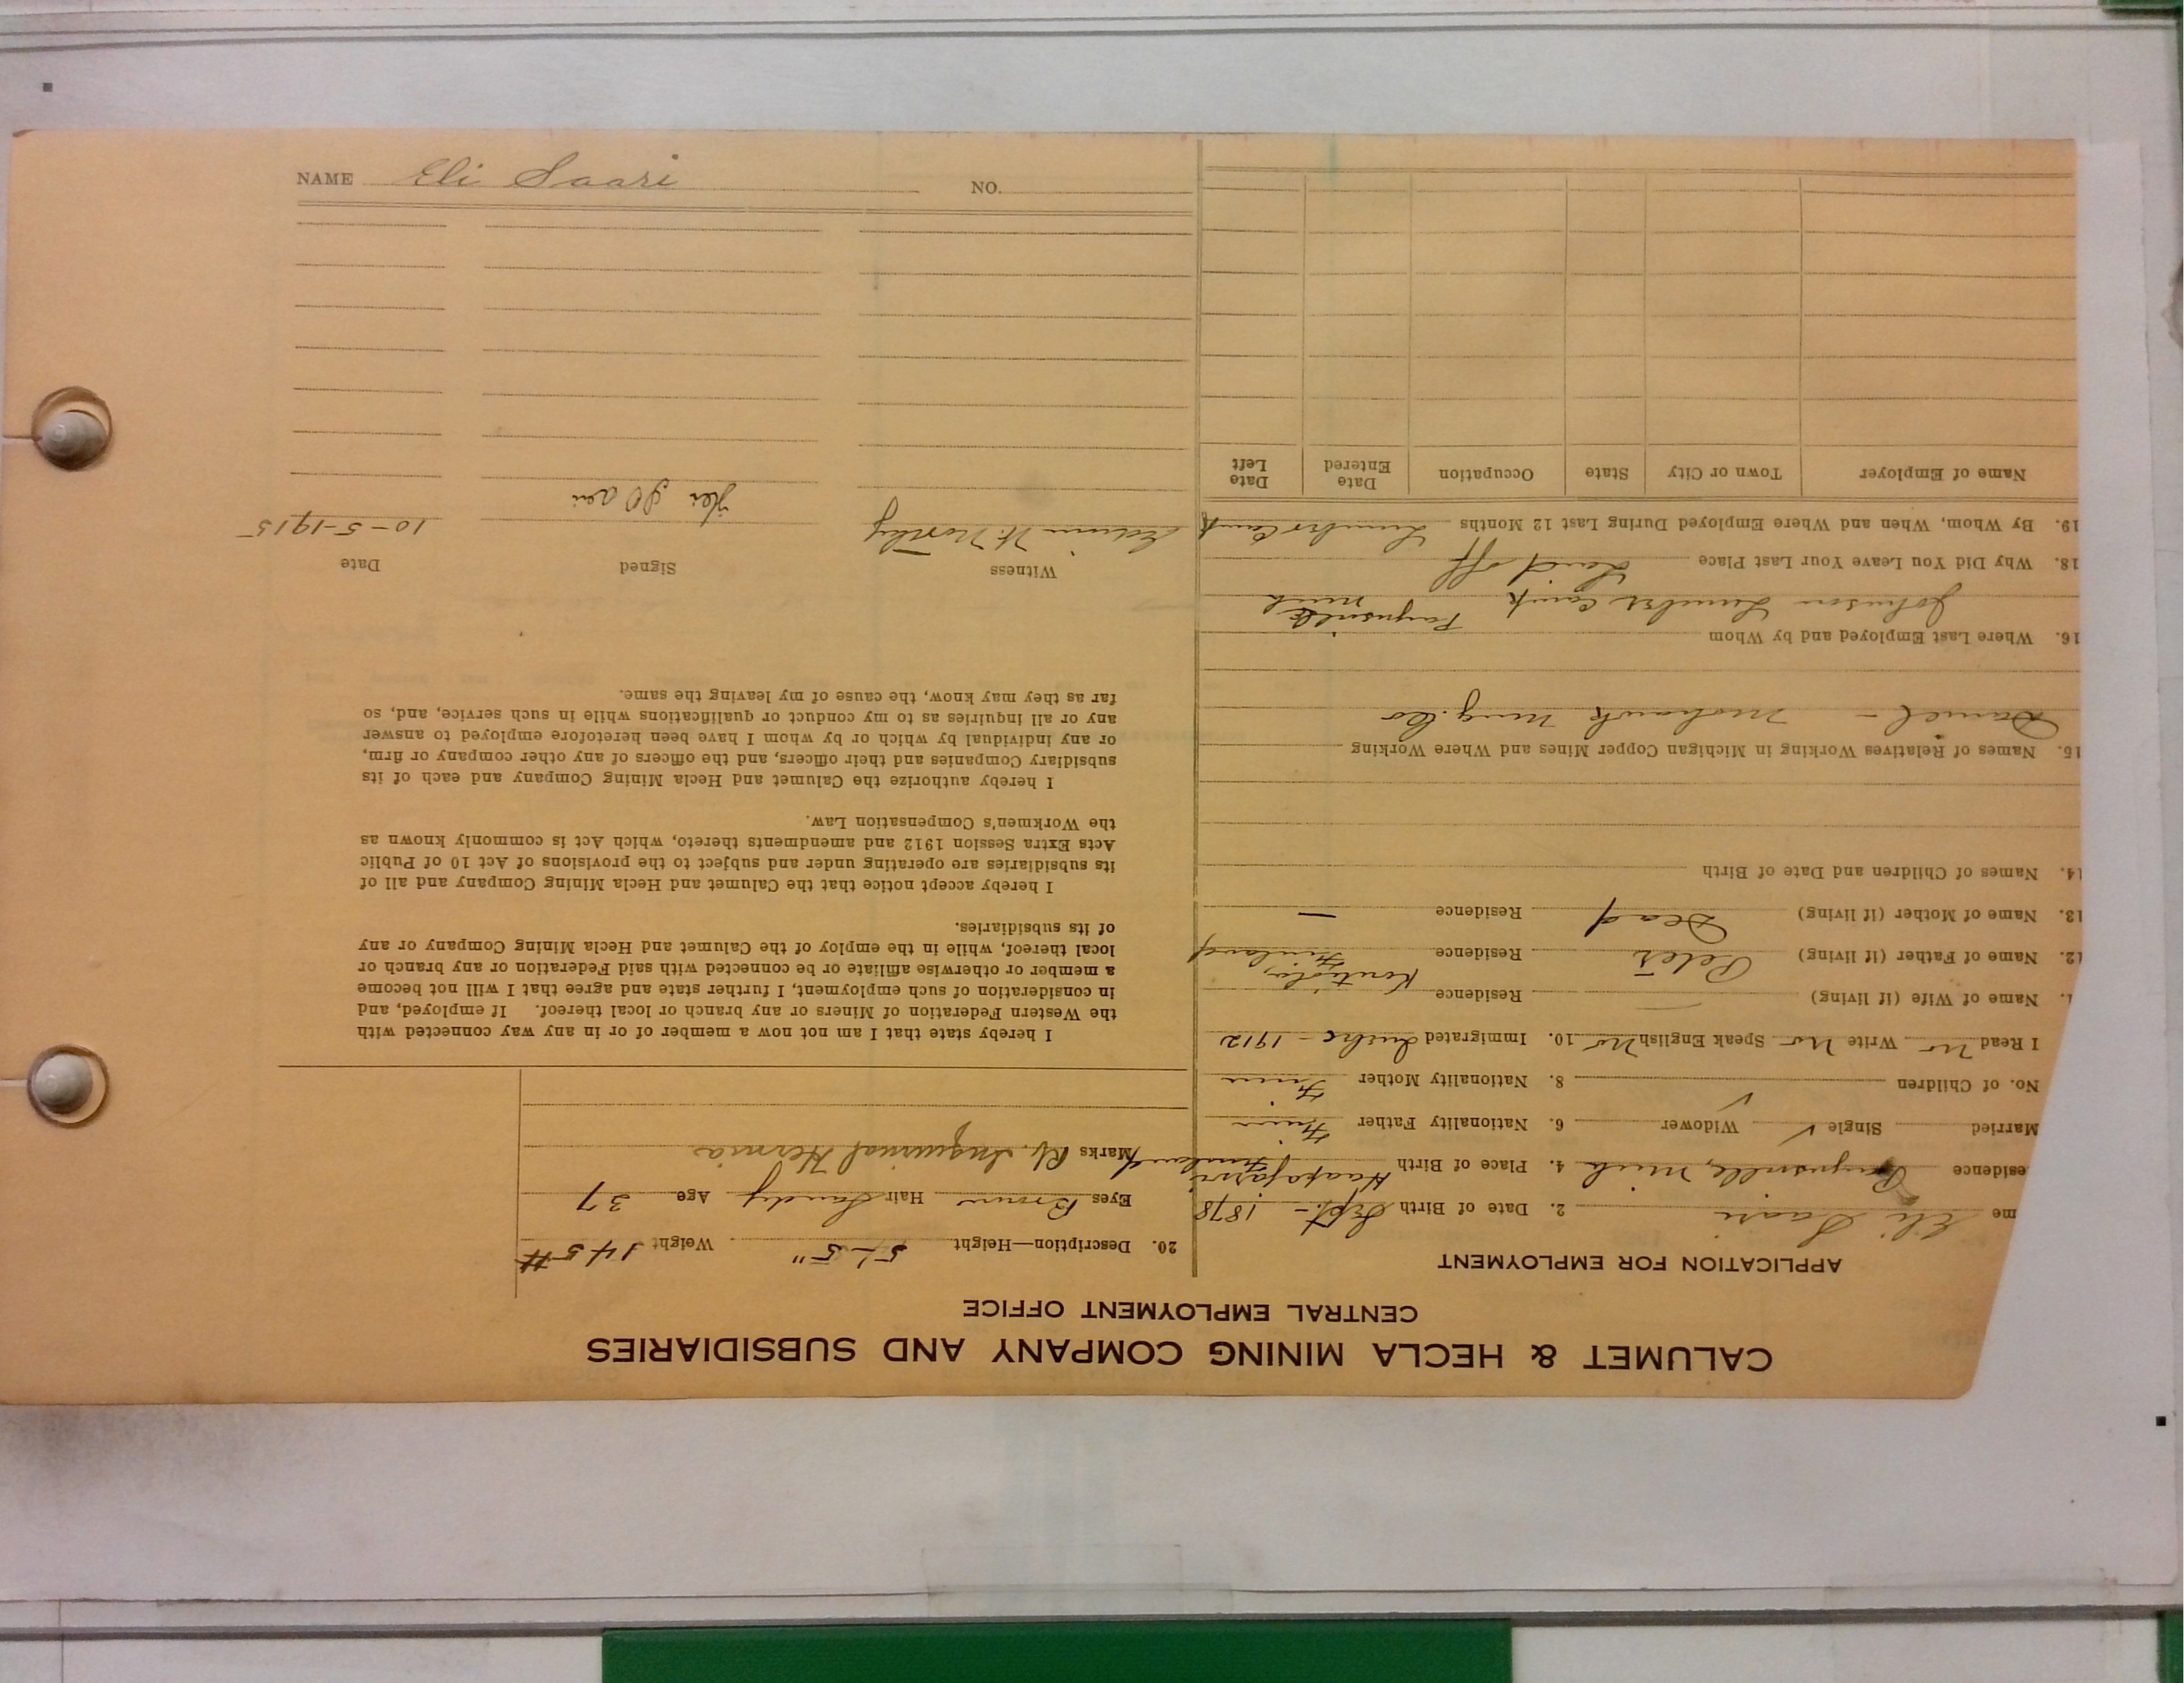 CALUMET & HECLA MINING COMPANY AND SUBSIDIARIES
CENTRAL EMPLOYMENT OFFICE
APPLICATION FOR EMPLOYMENT
me Eli Saari 2. Date of Birth Sept - 1878
esidence Mich 4. Place of Birth Haapajarvi Finland
Married Single ✓ Widower 6. Nationality Father Finn
No. of Children 8. Nationality Mother Finn
I Read No Write No Speak English No 10. Immigrated 1912
1. Name of Wife (if living) Residence
12. Name of Father (if living) Peter Residence Finland
13. Name of Mother (if living) Dead Residence —
14. Names of Children and Date of Birth
15. Names of Relatives Working in Michigan Copper Mines and Where Working
Daniel - Mohawk Mng. Co
16. Where Last Employed and by Whom
Johnson Lumber Camp Mich
18. Why Did You Leave Your Last Place Laid off
19. By Whom, When and Where Employed During Last 12 Months Lumber Camp
Name of Employer Town or City State Occupation Date Entered Date Left
20. Description—Height 5'-5" Weight 145#
Eyes Brown Hair Sandy Age 37
Marks Rt. Inguinal Hernia
I hereby state that I am not now a member of or in any way connected with
the Western Federation of Miners or any branch or local thereof. If employed, and
in consideration of such employment, I further state and agree that I will not become
a member or otherwise affiliate or be connected with said Federation or any branch or
local thereof, while in the employ of the Calumet and Hecla Mining Company or any
of its subsidiaries.
I hereby accept notice that the Calumet and Hecla Mining Company and all of
its subsidiaries are operating under and subject to the provisions of Act 10 of Public
Acts Extra Session 1912 and amendments thereto, which Act is commonly known as
the Workmen's Compensation Law.
I hereby authorize the Calumet and Hecla Mining Company and each of its
subsidiary Companies and their officers, and the officers of any other company or firm,
or any individual by which or by whom I have been heretofore employed to answer
any or all inquiries as to my conduct or qualifications while in such service, and, so
far as they may know, the cause of my leaving the same.
Witness Signed Date
10-5-1915
NAME Eli Saari NO.